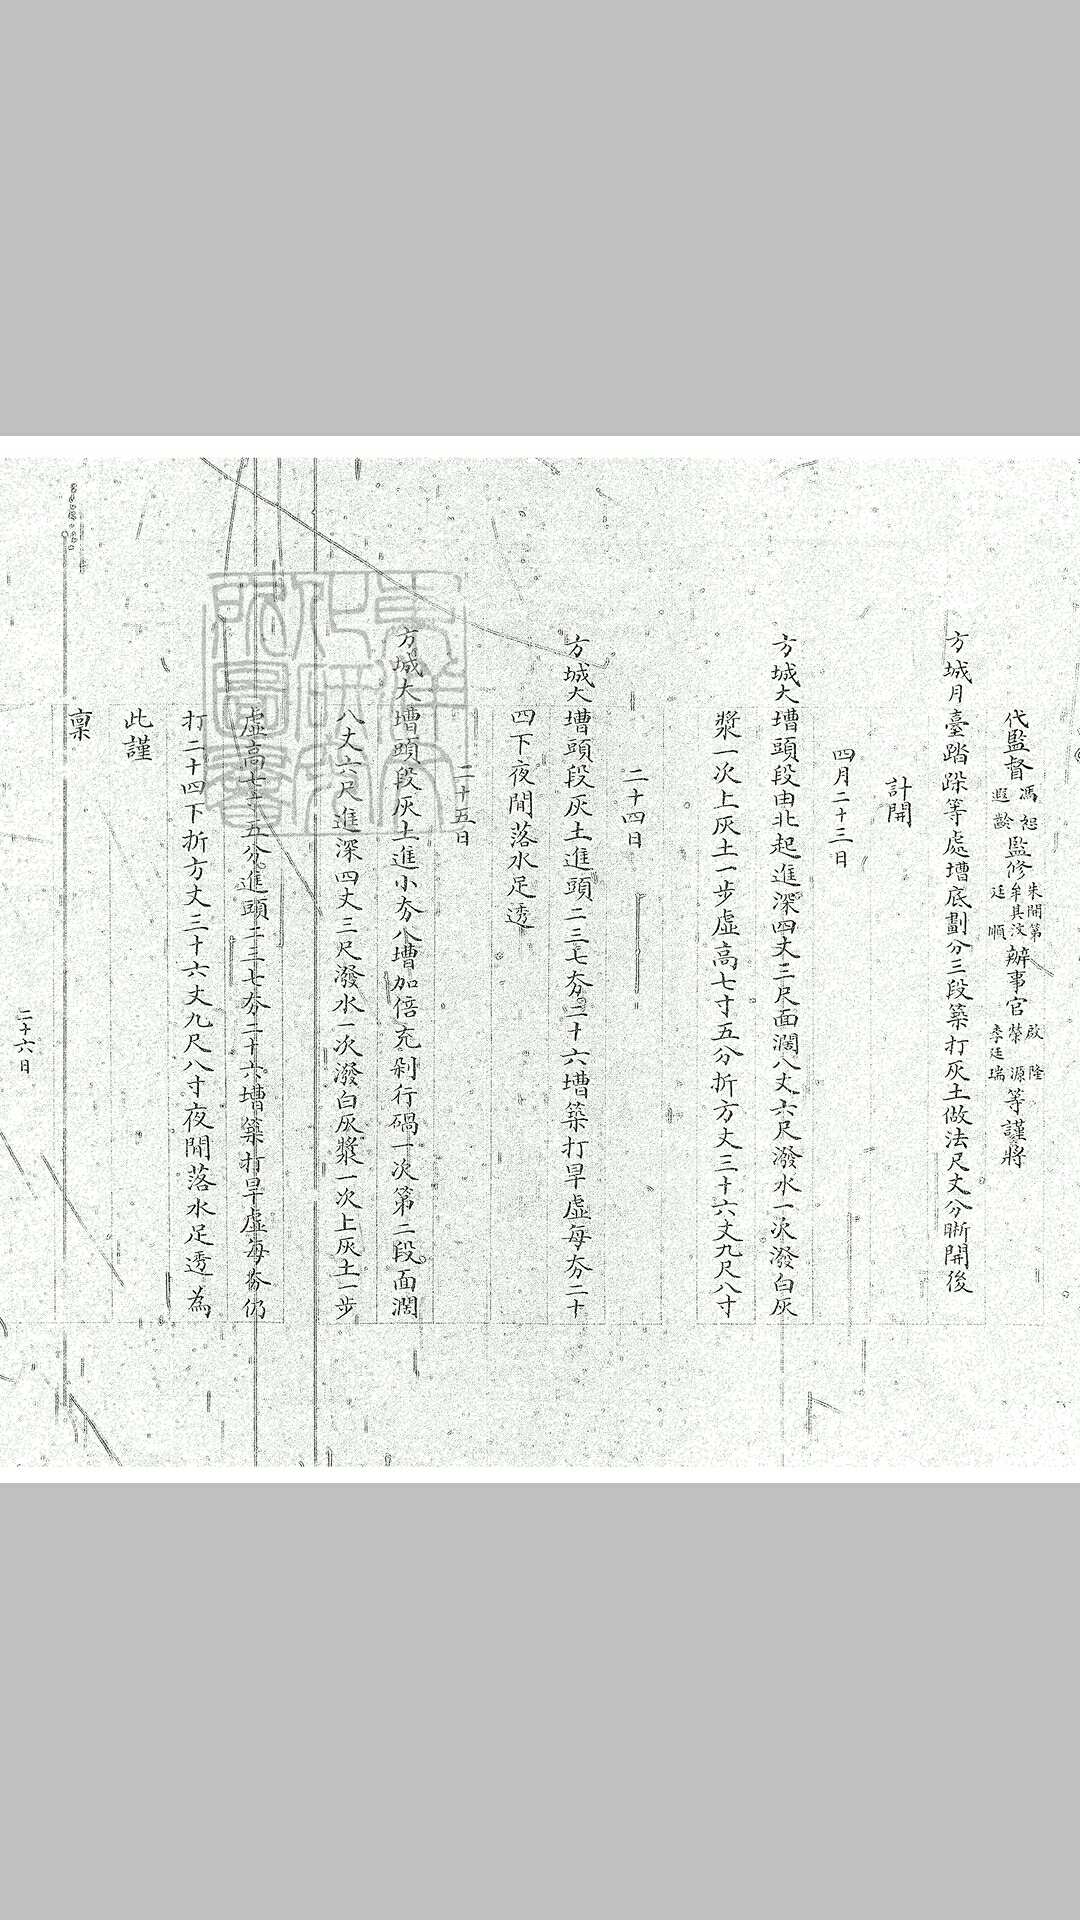 代監督馮恕遐齡監修朱開第牟其汶廷順辦事官啟隆榮源李廷瑞等謹將
方城月臺踏跺等處墁底劃分三段築打灰土做法尺丈分晰開後
計開
四月二十三日
方城大墁頭段由北起進深四丈三尺面濶八丈六尺潑水一次潑白灰
漿一次上灰土一步虛高七寸五分折方丈三十六丈九尺八寸
二十四日
方城大墁頭段灰土進頭二三七夯二十六墁築打旱虛每夯二十
四下夜間落水足透
二十五日
方城大墁頭段灰土進小夯八墁加倍充剁行硪一次第二段面濶
八丈六尺進深四丈三尺潑水一次潑白灰漿一次上灰土一步
虛高七寸五分進頭二三七夯二十六墁築打旱虛每夯仍
打二十四下折方丈三十六丈九尺八寸夜間落水足透為
此謹
稟
二十六日